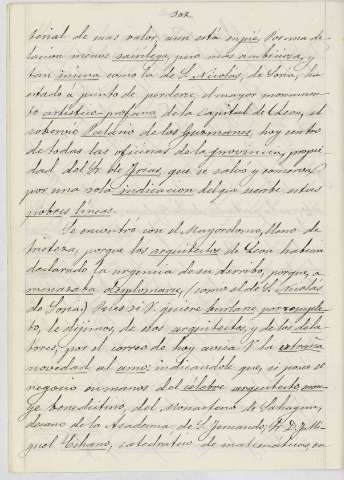 302
terial de mas valor, aun esta impía Poema de-
lacion menos sacrílega, pero más ambiciosa, y
tan inicua como la de S. Nicolás, de Soria, ha
estado á punto de perderse, el mayor monumen-
to artístico-profano, de la Capital de Leon, el
soberbio Palacio de los Guzmanes, hoy centro
de todas las oficinas de la provincia, propie-
dad del Sr. de Frias, que se salvó y conserva
por una sola indicacion del que escribe estas
pobres líneas.
Se encontró con el Mayordomo, lleno de
tristeza, porque los arquitectos de Leon habian
declarado la urgencia de su derribo, porque, a-
menazaba desplomarse, (como el de S. Nicolás
de Soria) Pues si V. quiere burlarse por comple-
to, le dijimos, de esos arquitectos, y de los dela-
tores, por el correo de hoy avisa V. la extraña
novedad al amo, indicandole que, si pone el
negocio en manos del célebre arquitecto, mon-
ge benedictino, del Monasterio de Sahagun,
decano de la Academia de S. Fernando, Fr. D. Mi-
guel Echano, catedrático de matemáticas, en